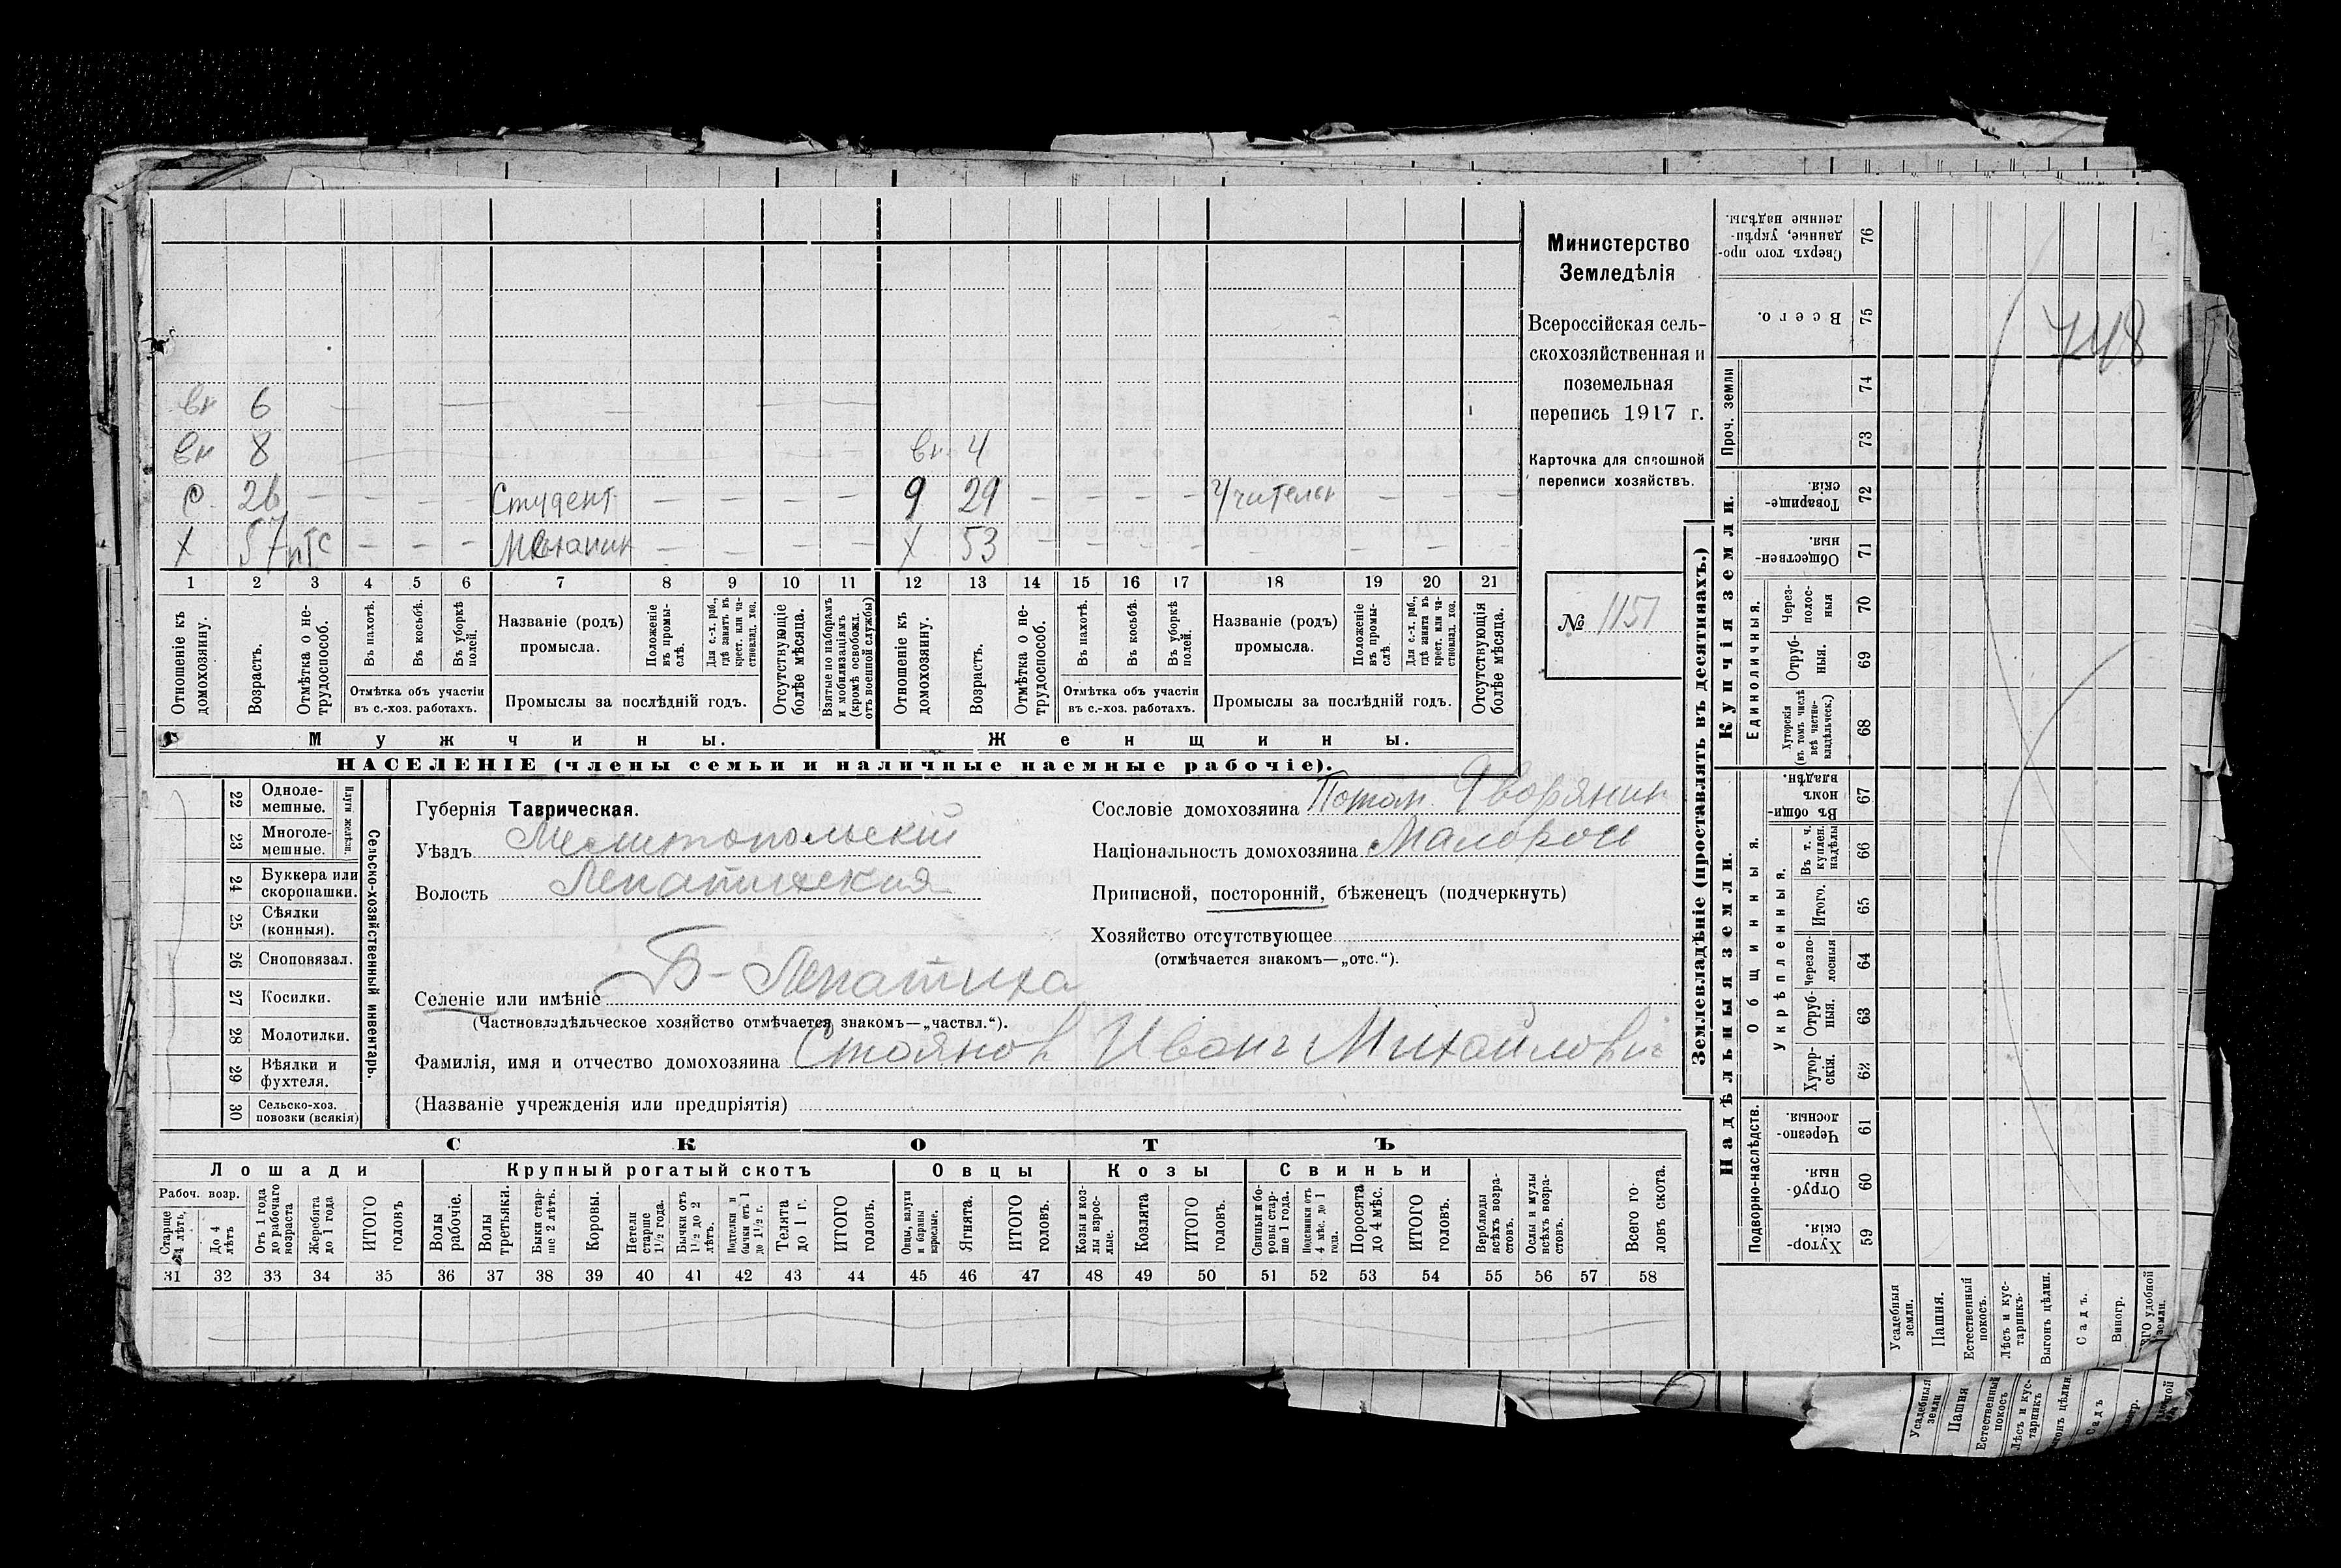 вн 6
вн 8 вн 4
с 26 — — — — Студент — — — — 9 29 — — — — Учительн — — —
Х 57 — — — Механик — — — — Х 53 — — — — — — — —
1 2 3 4 5 6 7 8 9 10 11 12 13 14 15 16 17 18 19 20 21
Отношеніе къ домохозяину.
Возрастъ.
Отмѣтка о нетрудоспособ.
Въ пахотѣ.
Въ косьбѣ.
Въ уборкѣ полей.
Отмѣтка объ участіи въ с.-хоз. работахъ.
Названіе (родъ) промысла.
Положеніе въ промыслѣ.
Для с.-х. раб., гдѣ занятъ въ крест. или частновлад. хоз.
Промыслы за послѣдній годъ.
Отсутствующіе болѣе мѣсяца.
Взятые по наборамъ и мобилизаціямъ (кромѣ освобожд. отъ военной службы)
Отношеніе къ домохозяину.
Возрастъ.
Отмѣтка о нетрудоспособ.
Въ пахотѣ.
Въ косьбѣ.
Въ уборкѣ полей.
Отмѣтка объ участіи въ с.-хоз. работахъ.
Названіе (родъ) промысла.
Положеніе въ промыслѣ.
Для с.-х. раб., гдѣ занята въ крест. или частновлад. хоз.
Промыслы за послѣдній годъ.
Отсутствующія болѣе мѣсяца.
Мужчины. Женщины.
НАСЕЛЕНІЕ (члены семьи и наличные наемные рабочіе).
Министерство
Земледѣлія
Всероссійская сель-
скохозяйственная и
поземельная
перепись 1917 г.
Карточка для сплошной
переписи хозяйствъ.
№ 1151
22 Одноле-
мешные.
23 Многоле-
мешные.
Плуги желѣзн.
24 Буккера или
скоропашки.
25 Сѣялки
(конныя).
26 Сноповязал.
27 Косилки.
28 Молотилки.
29 Вѣялки и
фухтеля.
30 Сельско-хоз.
повозки (всякія)
Сельско-хозяйственный инвентарь.
Губернія Таврическая.
Уѣздъ Мелитопольскій
Волость Лепатихская
Селеніе или имѣніе Б-Лепатиха
(Частновладѣльческое хозяйство отмѣчается знакомъ—„частвл.“).
Фамилія, имя и отчество домохозяина Стоянов Иванъ Михайловичъ
(Названіе учрежденія или предпріятія)
Сословіе домохозяина Потом. Дворянин
Національность домохозяина Малоросс
Приписной, посторонній, бѣженецъ (подчеркнуть)
Хозяйство отсутствующее
(отмѣчается знакомъ—„отс.“).
СКОТЪ
Лошади Крупный рогатый скотъ Овцы Козы Свиньи
Рабоч. возр.
Старще 4 лѣтъ.
До 4 лѣтъ
Отъ 1 года до рабочаго возраста
Жеребята до 1 года
ИТОГО головъ
Волы рабочіе.
Волы третьяки.
Быки старше 2 лѣтъ.
Коровы.
Нетели старше 1½ года.
Бычки отъ 1½ до 2 лѣтъ.
Подтелки и бычки отъ 1 до 1½ г.
Телята до 1 г.
ИТОГО головъ.
Овцы, валухи и бараны взрослые.
Ягнята.
ИТОГО головъ.
Козы и козлы взрослые.
Козлята
ИТОГО головъ.
Свиньи и боровы старше 1 года.
Подсвинки отъ 4 мѣс. до 1 года.
Поросята до 4 мѣс.
ИТОГО головъ.
Верблюды всѣхъ возрастовъ.
Ослы и мулы всѣхъ возрастовъ.
Всего головъ скота.
31 32 33 34 35 36 37 38 39 40 41 42 43 44 45 46 47 48 49 50 51 52 53 54 55 56 57 58
Землевладѣніе (проставлять въ десятинахъ.)
Надѣльныя земли. Купчія земли.
Подворно-наслѣдств.
Общинныя.
Укрѣпленныя.
Единоличныя.
Проч. земли
Сверхъ того проданные, укрѣпленные надѣлы. 76
Всего. 75
74
73
Товарищескія. 72
Общественныя. 71
Черезполосныя 70
Отрубныя. 69
Хуторскія (въ томъ числѣ всѣ частновладѣльческ.) 68
Въ общинномъ владѣн. 67
Въ т. ч. куплен. надѣлы 66
Итого. 65
Черезполосныя 64
Отрубныя. 63
Хуторскія. 62
Черезполосныя. 61
Отрубныя. 60
Хуторскія. 59
748
Усадебныя земли.
Пашня.
Естественный покосъ.
Лѣсъ и кустарникъ.
Выгонъ цѣлин.
Садъ.
Виногр.
удобной земли.
Усадебныя земли
Пашня
Естественный покосъ
Лѣсъ и кустарникъ
цѣлин.
Садъ